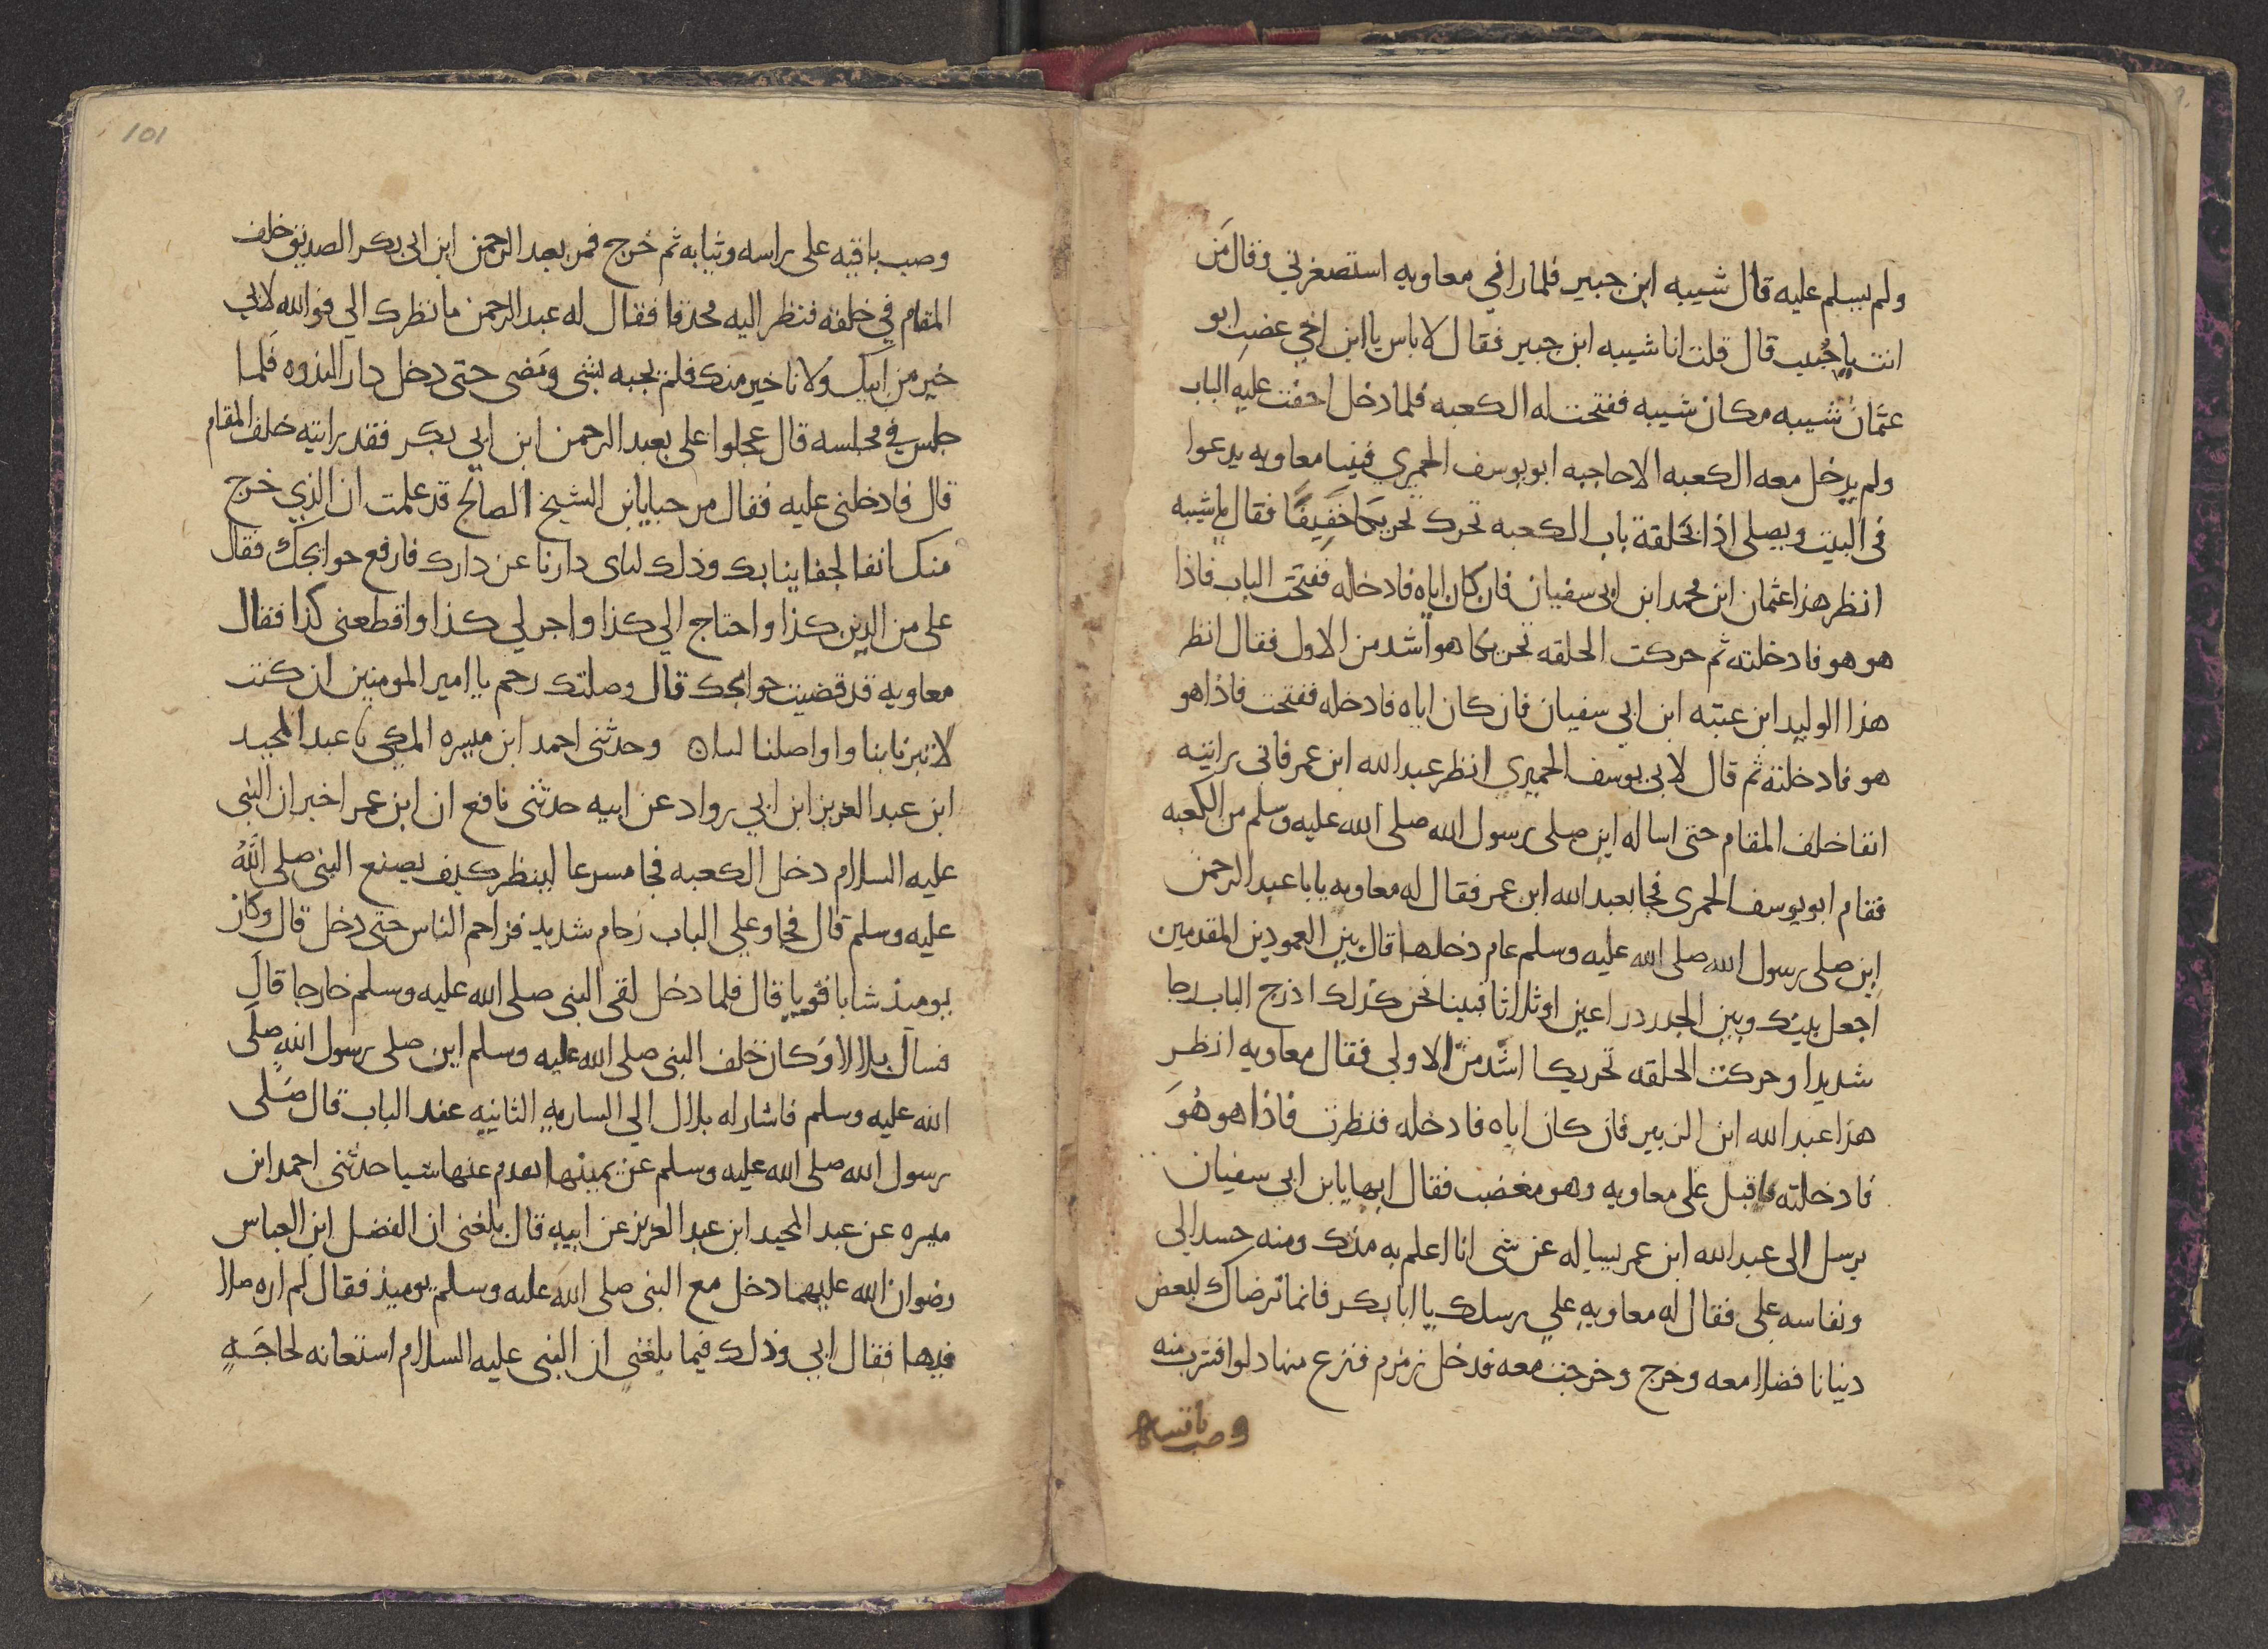 ولم يسلم عليه قال شيبه ابن جبير فلما راني معاويه استصغرني وقال من
انت يا حبيب قال قلت انا شيبه ابن جبير فقال لا باس يا ابن اخي غضب ابو
عثمان شيبه مكان شيبه ففتحت له الكعبه فلما دخل اجفت عليه الباب
ولم يدخل معه الكعبه الا حاجبه ابو يوسف الحميري فبينا معاويه يدعوا
في البيت ويصلي اذا بحلقة باب الكعبه تحرك تحريكا خفيفا فقال يا شيبه
انظر هذا عثمان ابن محمد ابن ابي سفيان فان كان اياه فادخله ففتحت الباب فاذا
هو هو فادخلته ثم حركت الحلقه تحريكا هو اشد من الاول فقال انظر
هذا الوليد ابن عتبه ابن ابي سفيان فان كان اياه فادخله ففتحت فاذا هو
هو فادخلته ثم قال لابي يوسف الحميري انظر عبد الله ابن عمر فاني رايته
انفا خلف المقام حتى اساله اين صلى رسول الله صلى الله عليه وسلم من الكعبه
فقام ابو يوسف الحميري فجا بعبد الله ابن عمر فقال له معاويه يابا عبد الرحمن
اين صلى رسول الله صلى الله عليه وسلم عام دخلها قال بين العمودين المقدمين
اجعل بينك وبين الجدر ذراعين او ثلاثا فبينا نحن كذلك اذ رج الباب رجا
شديدا وحركت الحلقه تحريكا اشد من الاولي فقال معاويه انظر
هذا عبد الله ابن الزبير فان كان اياه فادخله فنظرت فاذا هو هو
فادخلته فاقبل على معاويه وهو مغضب فقال ايها يابن ابي سفيان
يرسل الى عبد الله ابن عمر يساله عن شى انا اعلم به منك ومنه حسدا لي
ونفاسه على فقال له معاويه علي رسلك يا ابا بكر فانما نرضاك لبعض
دنيانا فصلا معه وخرج وخرجت معه فدخل زمزم فنزع منها دلوا فشرب منه
وصب باقيه
101
وصب باقيه على راسه وثيابه ثم خرج فمر بعبد الرحمن ابن ابي بكر الصديق خلف
المقام في حلقه فنظر اليه محدقا فقال له عبد الرحمن ما نظرك الي فوالله لابي
خير من ابيك ولانا خير منك فلم يجبه بشي ومضى حتى دخل دار الندوه فلما
جلس في مجلسه قال عجلوا على بعبد الرحمن ابن ابي بكر فقد رايته خلف المقام
قال فادخلني عليه فقال مرحبا يابن الشيخ الصالح قد علمت ان الذي خرج
منك انفا لجفاينا بك وذلك لناى دارنا عن دارك فارفع حوايجك فقال
على من الدين كذا واحتاج الي كذا واجر لي كذا واقطعني كذا فقال
معاويه قد قضيت حوايجك قال وصلتك رحم يا امير المومنين ان كنت
لابرنا بنا واوصلنا لنا ۞ وحدثني احمد ابن ميسره المكي نا عبد المجيد
ابن عبد العزيز ابن ابي رواد عن ابيه حدثني نافع ان ابن عمر اخبر ان النبي
عليه السلام دخل الكعبه فجا مسرعا لينظر كيف يصنع النبي صلى الله
عليه وسلم قال فجا وعلي الباب زحام شديد فزاحم الناس حتى دخل قال وكان
يوميذ شابا قويا قال فلما دخل لقي النبي صلى الله عليه وسلم خارجا قال
فسال بلالا وكان خلف النبي صلى الله عليه وسلم اين صلى رسول الله صلى
الله عليه وسلم فاشار له بلال الي الساريه الثانيه عند الباب قال صلى
رسول الله صلى الله عليه وسلم عن يمينها تقدم عنها شيا حدثني احمد ابن
ميسره عن عبد المجيد ابن عبد العزيز عن ابيه قال بلغني ان الفضل ابن العباس
رضوان الله عليهما دخل مع النبي صلى الله عليه وسلم يوميذ فقال لم اره صلا
فيها فقال ابي وذلك فيما بلغني ان النبي عليه السلام استعانه لحاجه